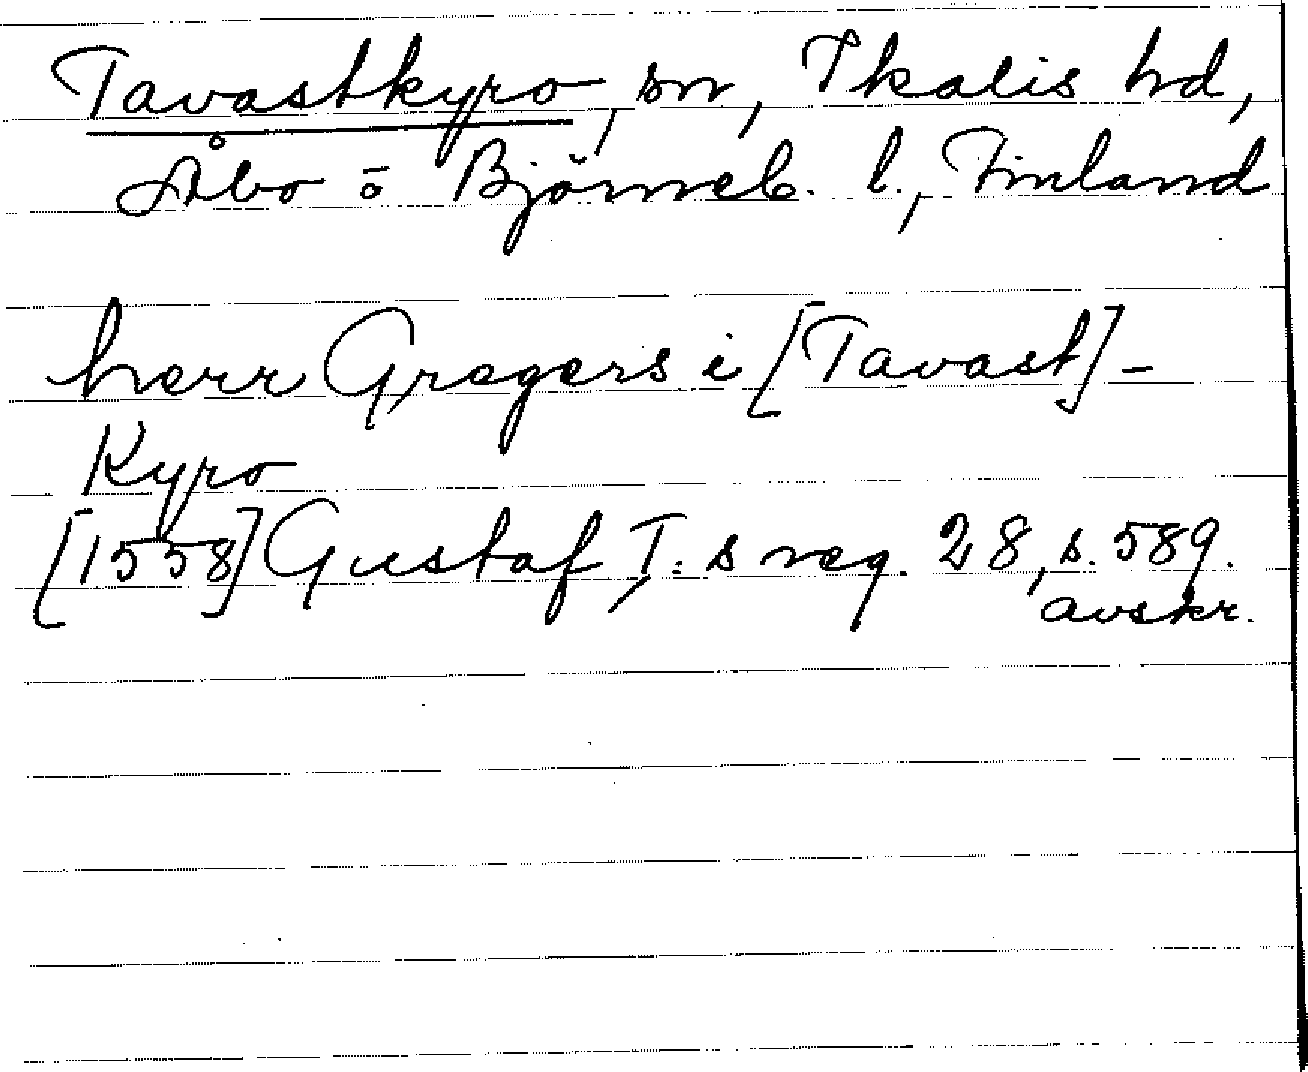 Tavastkyro, sn, Ikalis hd,
Åbo o Björneb. l., Finland
herr Gregers i [Tavast]-
Kyro
[1558] Gustaf I:s reg. 28, s. 589.
avskr.